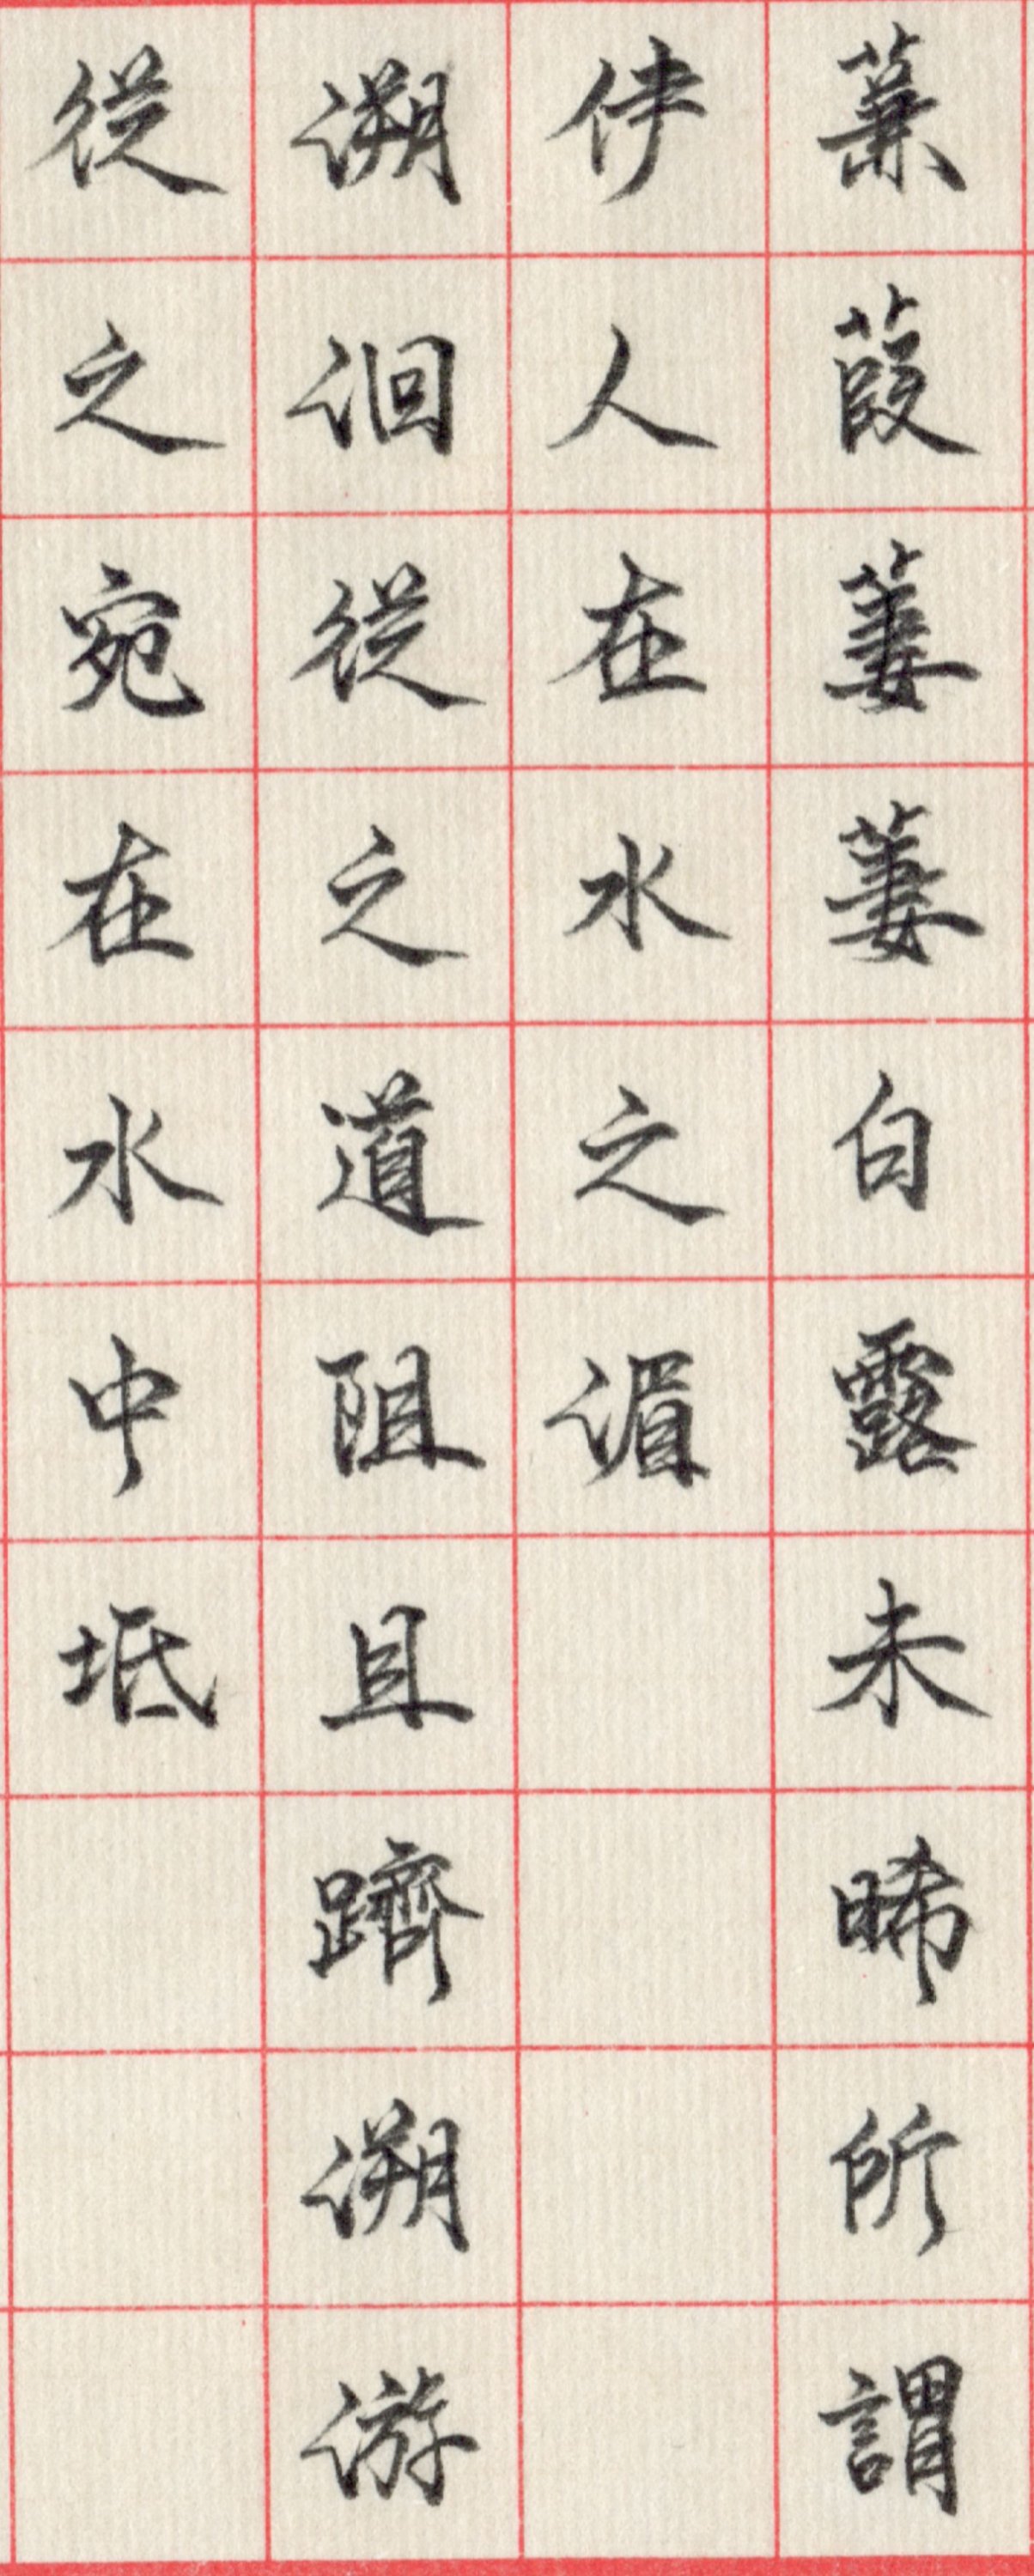 蒹葭萋萋白露未晞所謂
伊人在水之湄
溯洄從之道阻且躋溯游
從之宛在水中坻